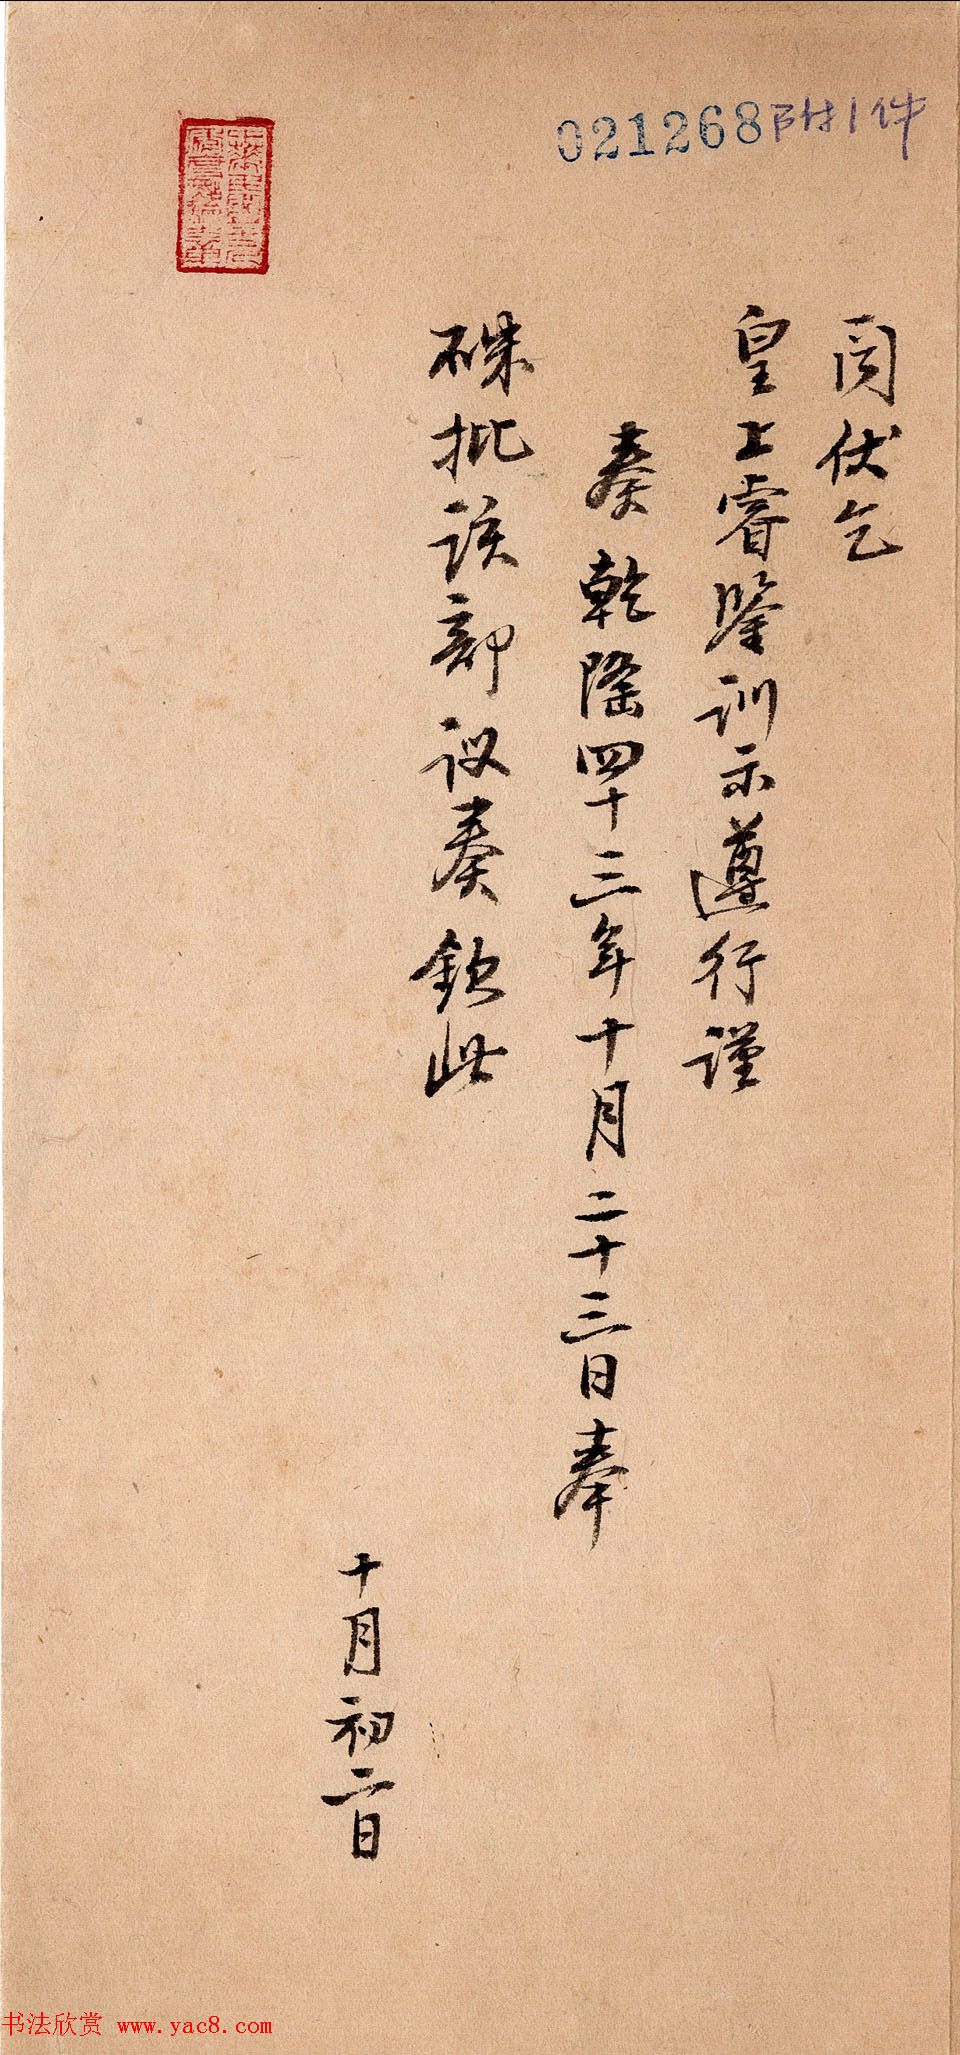 021268附1件
阅伏乞
皇上睿鉴训示遵行谨
奏乾隆四十三年十月二十三日奉
硃批该部议奏钦此
十月初二日
书法欣赏 www.yac8.com